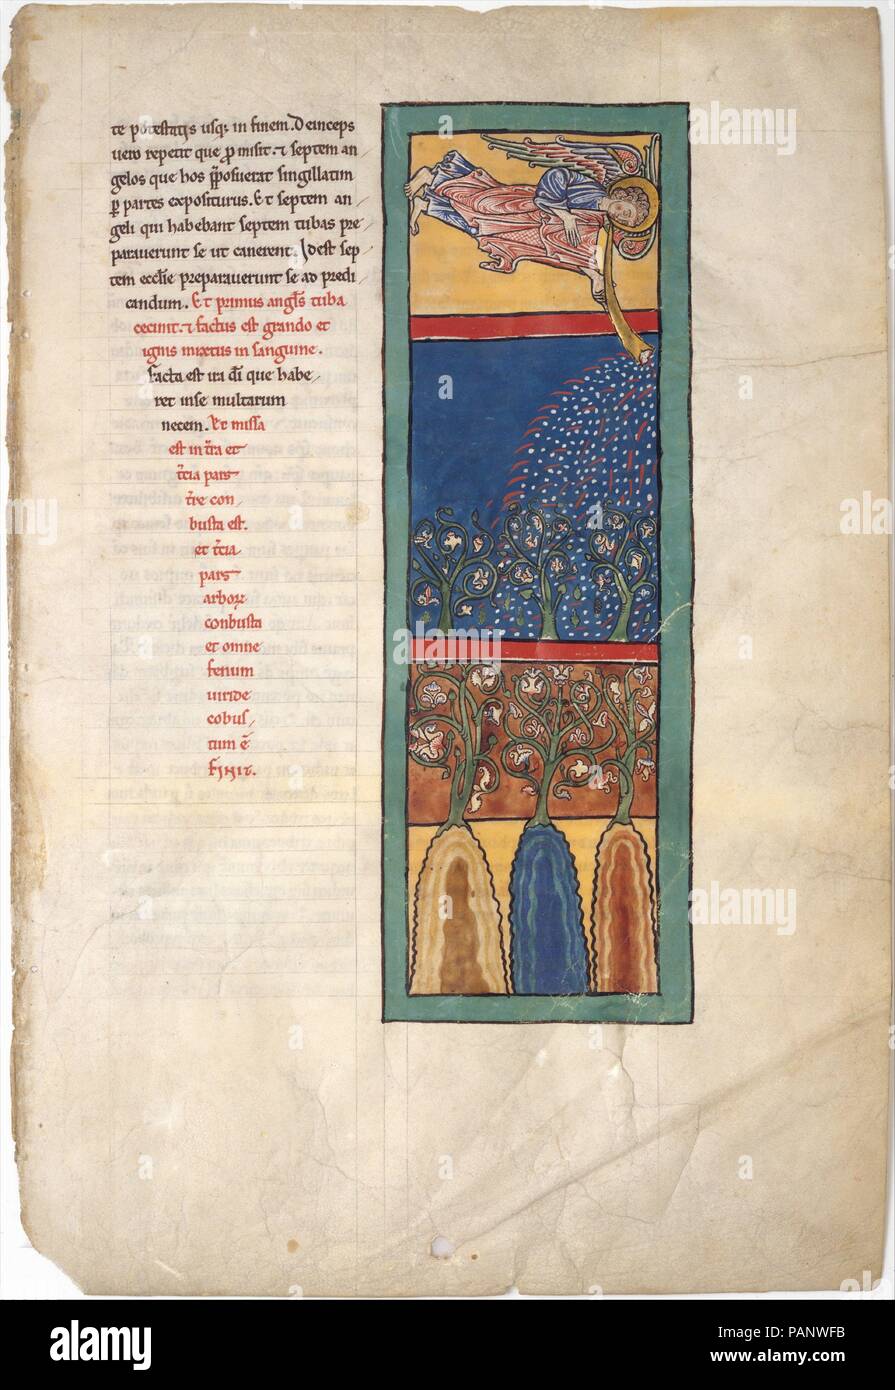 te potestatis usq; in finem. Deinceps
uero repetit que ꝓmisit. ⁊ septem an
gelos que hos ꝓposuerat singillatim
ꝑ partes expositurus. Et septem an
geli qui habebant septem tubas pre
parauerunt se ut canerent. Idest sep
tem ecclie preparauerunt se ad predi
candum. Et primus angls tuba
cecinit. ⁊ factus est grando et
ignis mixtus in sanguine.
Facta est ira di que habe
ret inse multarum
necem. Et missa
est in tra et
tcia pars
tre con
busta est.
et tcia
pars
arborꝝ
conbusta
et omne
fenum
uiride
cobus
tum ē
finit.
alamy
Image ID: PANWFB
www.alamy.com